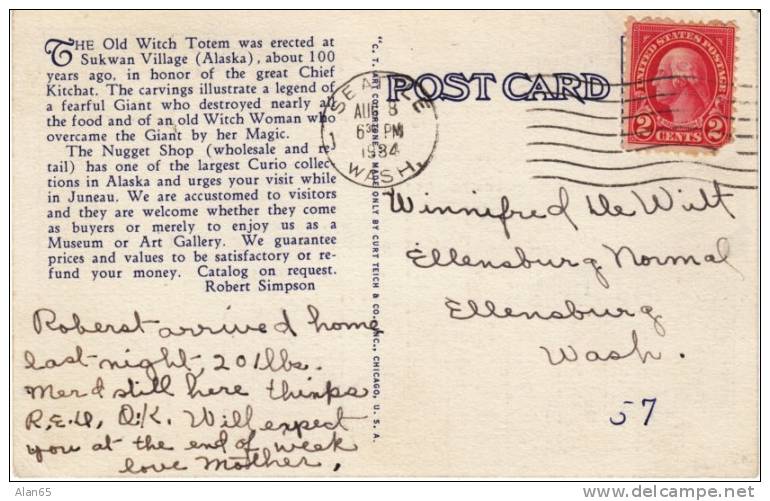 THE Old Witch Totem was erected at
Sukwan Village (Alaska), about 100
years ago, in honor of the great Chief
Kitchat. The carvings illustrate a legend of
a fearful Giant who destroyed nearly all
the food and of an old Witch Woman who
overcame the Giant by her Magic.
The Nugget Shop (wholesale and re-
tail) has one of the largest Curio collec-
tions in Alaska and urges your visit while
in Juneau. We are accustomed to visitors
and they are welcome whether they come
as buyers or merely to enjoy us as a
Museum or Art Gallery. We guarantee
prices and values to be satisfactory or re-
fund your money. Catalog on request.
Robert Simpson
Roberst arrived home
last night, 201lbs.
still here thinks
O.K. Will expect
you at the end of week
love Mother,
"C. T. ART COLORTONE" MADE ONLY BY CURT TEICH & CO., INC., CHICAGO, U. S. A.
POST CARD
SEATTLE
AUG 8
630 PM
1934
WASH.
1
UNITED STATES POSTAGE
2 CENTS 2
Winnifred De Witt
Ellensburg Normal
Ellensburg
Wash.
57
Alan65
www.delcampe.net